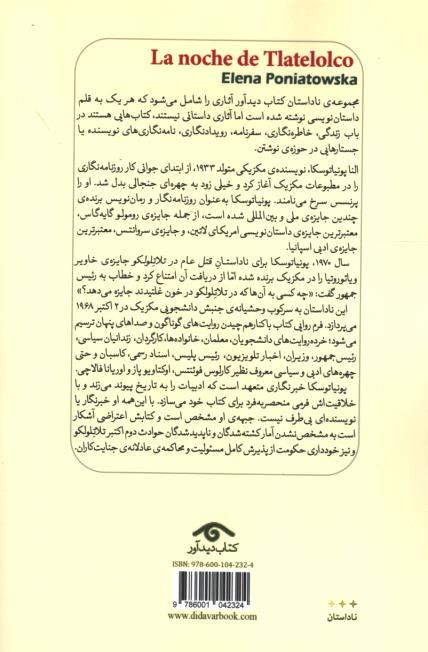 La noche de Tlatelolco
Elena Poniatowska
مجموعه‌ی ناداستان کتاب دیدآور آثاری را شامل می‌شود که هر یک به قلم
داستان‌نویسی نوشته شده است اما آثاری داستانی نیستند، کتاب‌هایی هستند در
باب زندگی، خاطره‌نگاری، سفرنامه، رویدادنگاری، نامه‌نگاری‌های نویسنده یا
جستارهایی در حوزه‌ی نوشتن.
النا پونیاتوسکا، نویسنده‌ی مکزیکی متولد ۱۹۳۳، از ابتدای جوانی کار روزنامه‌نگاری
را در مطبوعات مکزیک آغاز کرد و خیلی زود به چهره‌ای جنجالی بدل شد. او را
پرنسس سرخ می‌نامند. پونیاتوسکا به‌عنوان روزنامه‌نگار و رمان‌نویس برنده‌ی
چندین جایزه‌ی ملی و بین‌المللی شده است، از جمله جایزه‌ی رومولو گایه‌گاس،
معتبرترین جایزه‌ی داستان‌نویسی امریکای لاتین، و جایزه‌ی سروانتس، معتبرترین
جایزه‌ی ادبی اسپانیا.
سال ۱۹۷۰، پونیاتوسکا برای ناداستانِ قتل عام در تلاتِلولکو جایزه‌ی خاویر
ویائوروتیا را در مکزیک برنده شده اما از دریافت آن امتناع کرد و خطاب به رئیس
جمهور گفت: «چه کسی به آن‌ها که در تلاتِلولکو در خون غلتیدند جایزه می‌دهد؟»
این ناداستان به سرکوب وحشیانه‌ی جنبش دانشجویی مکزیک در ۲ اکتبر ۱۹۶۸
می‌پردازد. فرم روایی کتاب با کنار هم چیدن روایت‌های گوناگون و صداهای پنهان ترسیم
می‌شود؛ خرده‌روایت‌های دانشجویان، معلمان، خانواده‌ها، کارگردان، زندانیان سیاسی،
رئیس جمهور، وزیران، اخبار تلویزیون، رئیس پلیس، اسناد رسمی، کاسبان و حتی
چهره‌های ادبی و سیاسی معروف نظیر کارلوس فوئنتس، اوکتاویو پاز و اوریانا فالاچی.
پونیاتوسکا خبرنگاری متعهد است که ادبیات را به تاریخ پیوند می‌زند و با
خلاقیت‌اش فرمی منحصربه‌فرد برای کتاب خود می‌سازد. با این‌همه او خبرنگار یا
نویسنده‌ای بی‌طرف نیست. جبهه‌ی او مشخص است و کتابش اعتراضی آشکار
است به مشخص نشدن آمار کشته‌شدگان و ناپدیدشدگان حوادث دوم اکتبر تلاتِلولکو
و نیز خودداری حکومت از پذیرش کامل مسئولیت و محاکمه‌ی عادلانه‌ی جنایت‌کاران.
کتاب دیدآور
ISBN: 978-600-104-232-4
9 786001 042324
www.didavarbook.com
ناداستان